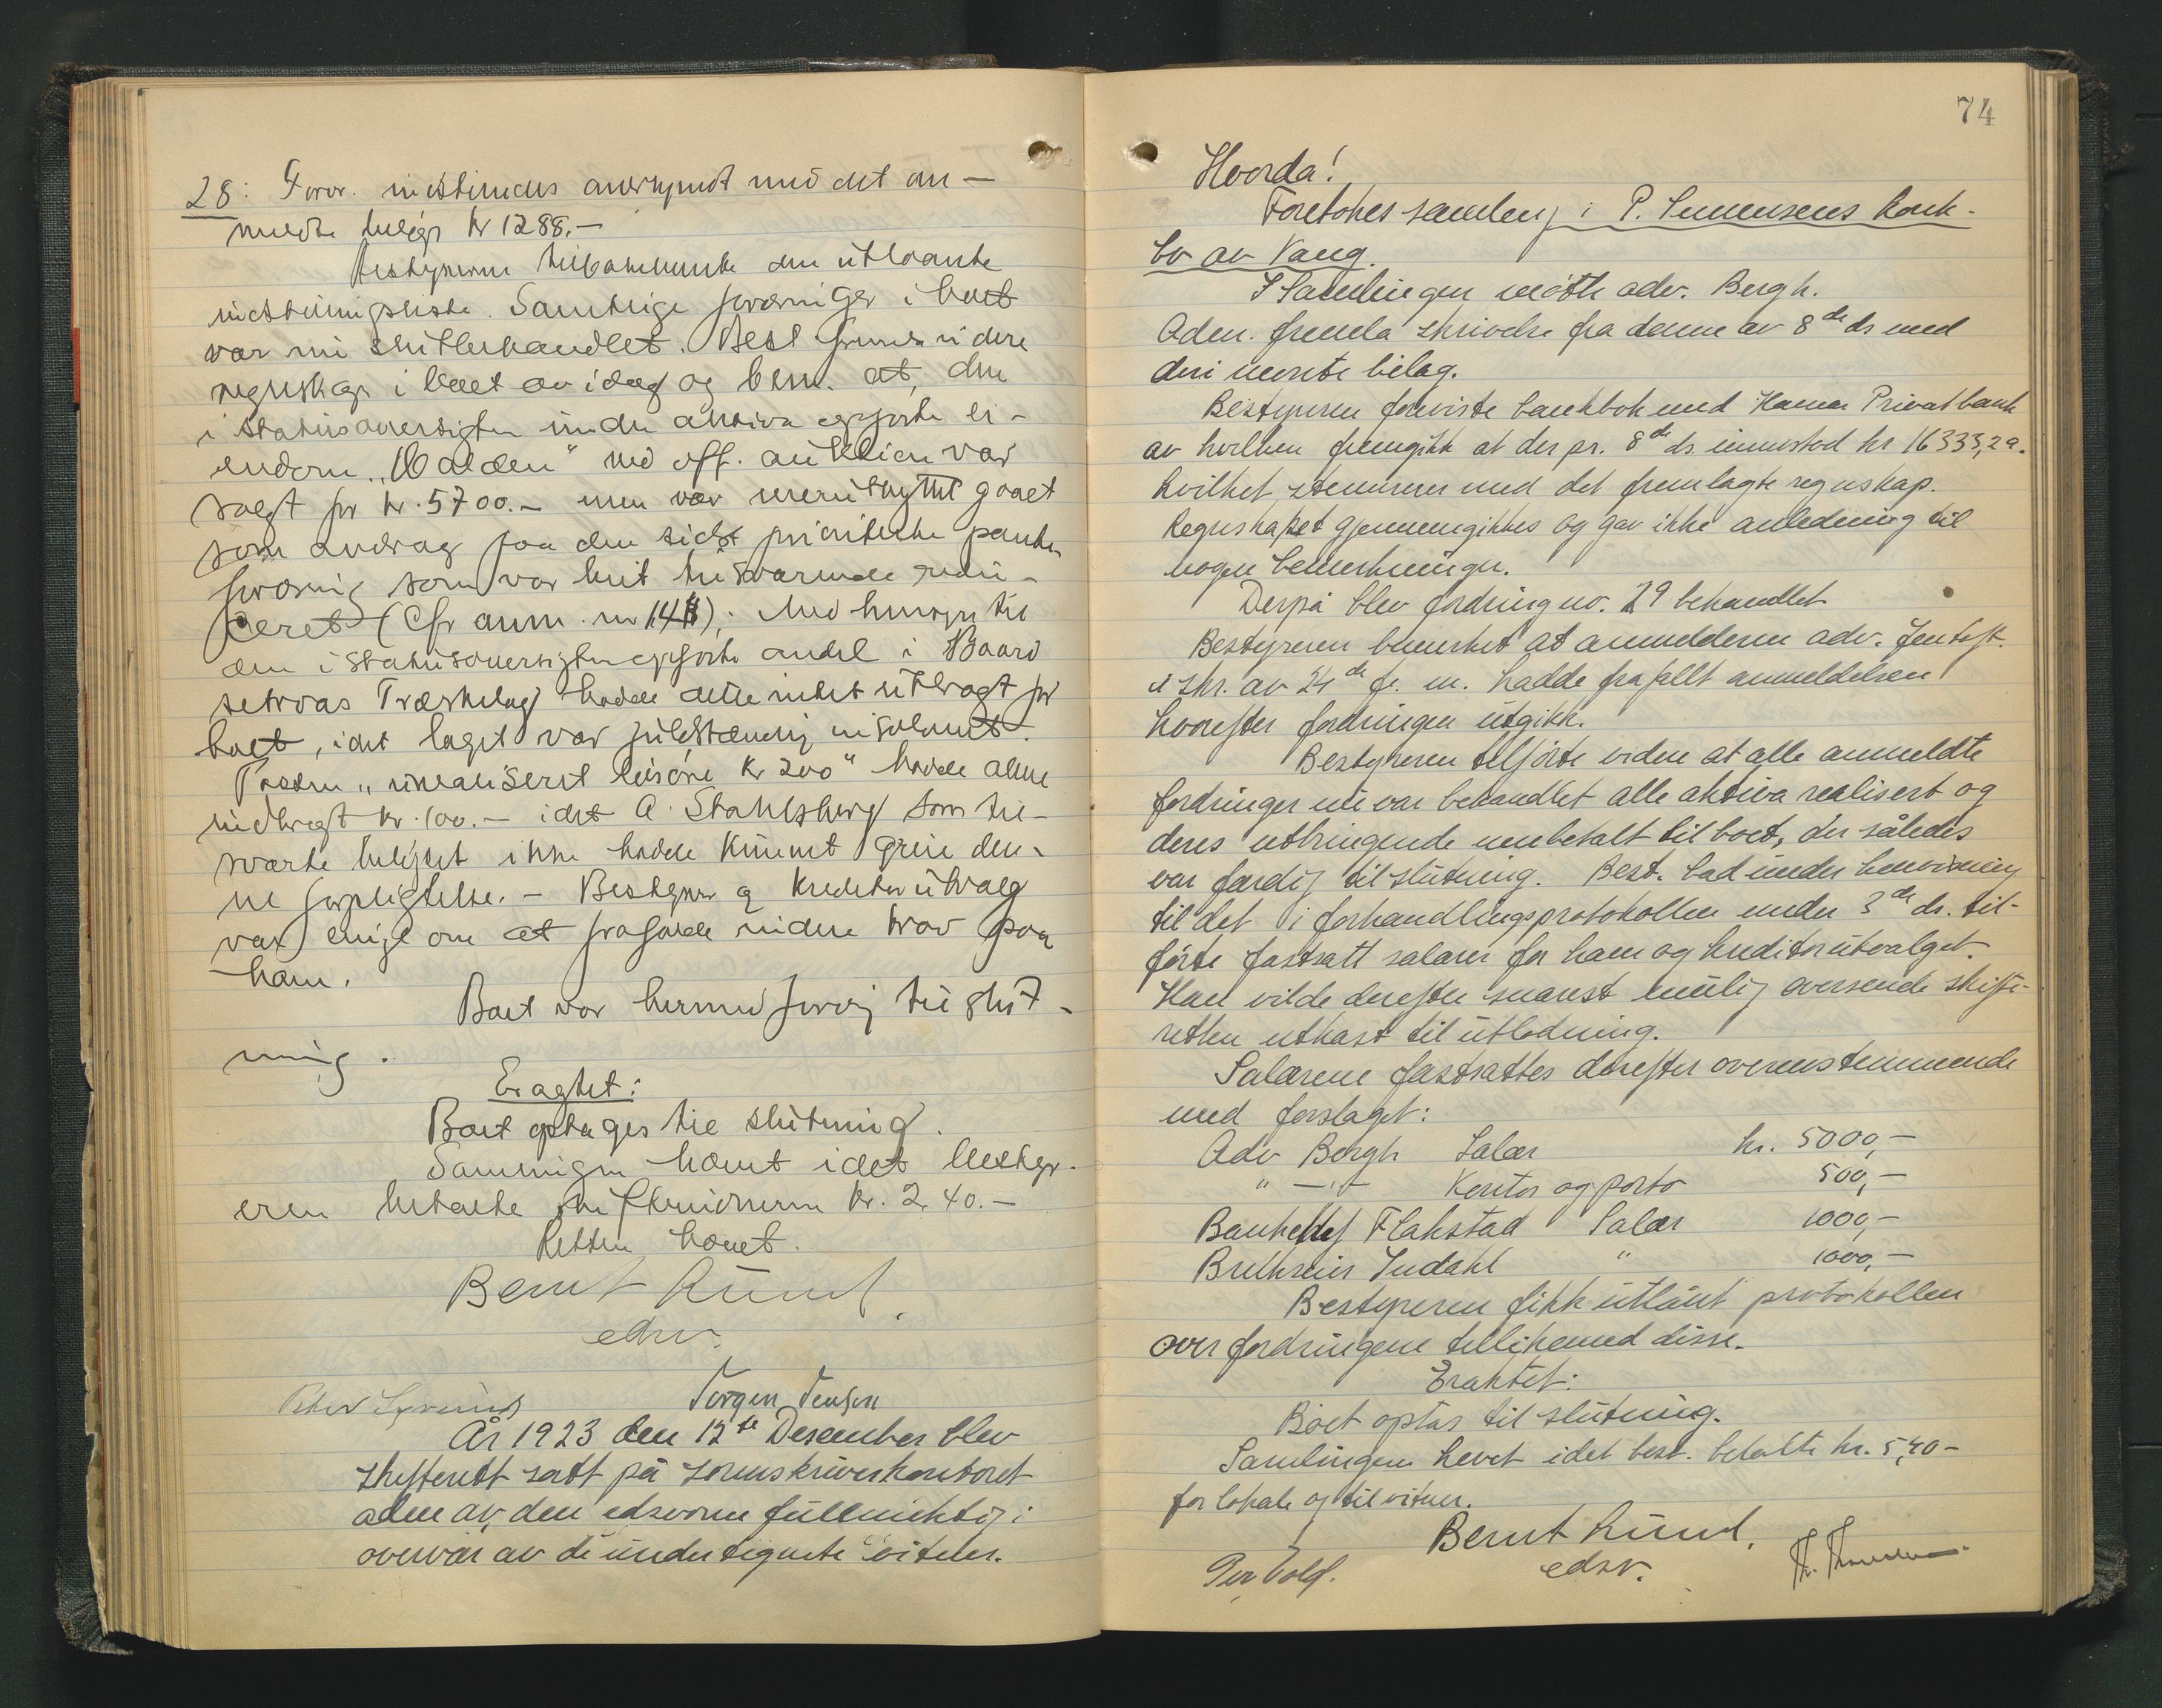 28: Fordr. indstilledes anerkjendt med det an-
meldte beløp kr 1288.-
Bestyreren tilbakeleverte den utlaante
indstillingsliste. Samtlige fordringer i boet
var nu slutbehandlet. Best. fremla videre
regnskap i boet av idag og bem. at, den
i statusoversigten under aktiva opførte ei-
endom "Valden" ved off. auktion var
solgt for kr. 5700.- men var merutbyttet gaaet
som avdrag paa den sidst prioriterte pante-
fordring som var blit tilsvarende redu-
ceret (Cfr anm. nr 14). Med hensyn til
den i statusoversigten opførte andel i Baard
setraas Træskelag hadde dette intet utbragt for
boet, idet laget var fuldstændig insolvent.
Posten "urealisert løsøre kr 200" hadde alene
indbragt kr. 100.- idet A. Stahlsberg som til-
svarte beløpet ikke hadde kunnet greie den-
ne forpligtelse. - Bestyrer og kreditorutvalg
var enige om at frafalde videre krav paa
ham.
Boet var hermed færdig til slut-
ning.
Eragtet:
Boet optages til slutning.
Samlingen hævet idet bestyr-
eren betalte skiftevidnerne kr. 2.40.-
Retten hævet.
Bernt Lund.
edsv.
Jørgen Jensen
År 1923 den 12te Desember blev
skifterett satt på sorenskriverkontoret
adm av den edsvorne fullmektig i
overvær av de undertegnete vitner.
74
Hvorda!
Foretokes samling i P. Simensens konk-
bo av Vang.
I samlingen møtte adv. Bergh.
Adm. fremla skrivelse fra denne av 8de ds med
deri nevnte bilag.
Bestyreren foreviste bankbok med Hamar Privatbank
av hvilken fremgikk at der pr. 8de ds. innestod kr 16333,29.
hvilket stemmer med det fremlagte regnskap.
Regnskapet gjennemgikkes og gav ikke anledning til
nogen bemerkninger.
Derpå blev fordring nr. 29 behandlet
Bestyreren bemerket at anmelderen adv. Jentoft
i skr. av 24de f. m. hadde frafallt anmeldelsen
hvorefter fordringen utgikk.
Bestyreren tilførte videre at alle anmeldte
fordringer nu var behandlet alle aktiva realisert og
deres utbringende innbetalt til boet, der således
var færdig til slutning. Best. bad under henvisning
til det i forhandlingsprotokollen under 3de ds. til-
førte fastsatt salærer for ham og kreditorutvalget.
Han vilde derefter snarest mulig oversende skifte-
retten utkast til utlodning.
Salærene fastsattes derefter overensstemmende
med forslaget:
Adv Bergh Salær kr. 5000,-
" -"- Kontor og porto 500,-
Flakstad Salær 1000,-
Indahl " 1000,-
Bestyreren fikk utlånt protokollen
over fordringene tillikemed disse.
Eraktet:
Boet optas til slutning.
Samlingen hevet idet best. betalte kr. 5,40-
for lokale og til vitner.
Bernt Lund.
edsv.
Per Vold.